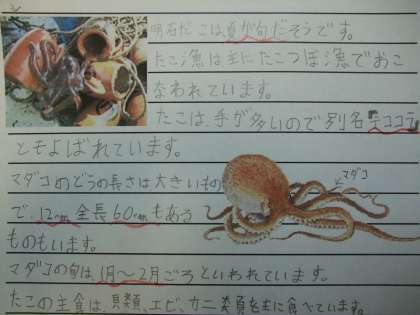 明石だこは、夏が旬だそうです。
たこ漁は主にたこつぼ漁でおこ
なわれています。
たこは、手が多いので別名
ともよばれています。
マダコ
マダコのどうの長さは大きいもの
で、12cm全長60cmもある
ものもいます。
マダコの旬は、1月～2月ごろといわれています。
たこの主食は、貝類、エビ、カニ類をもに食べています。